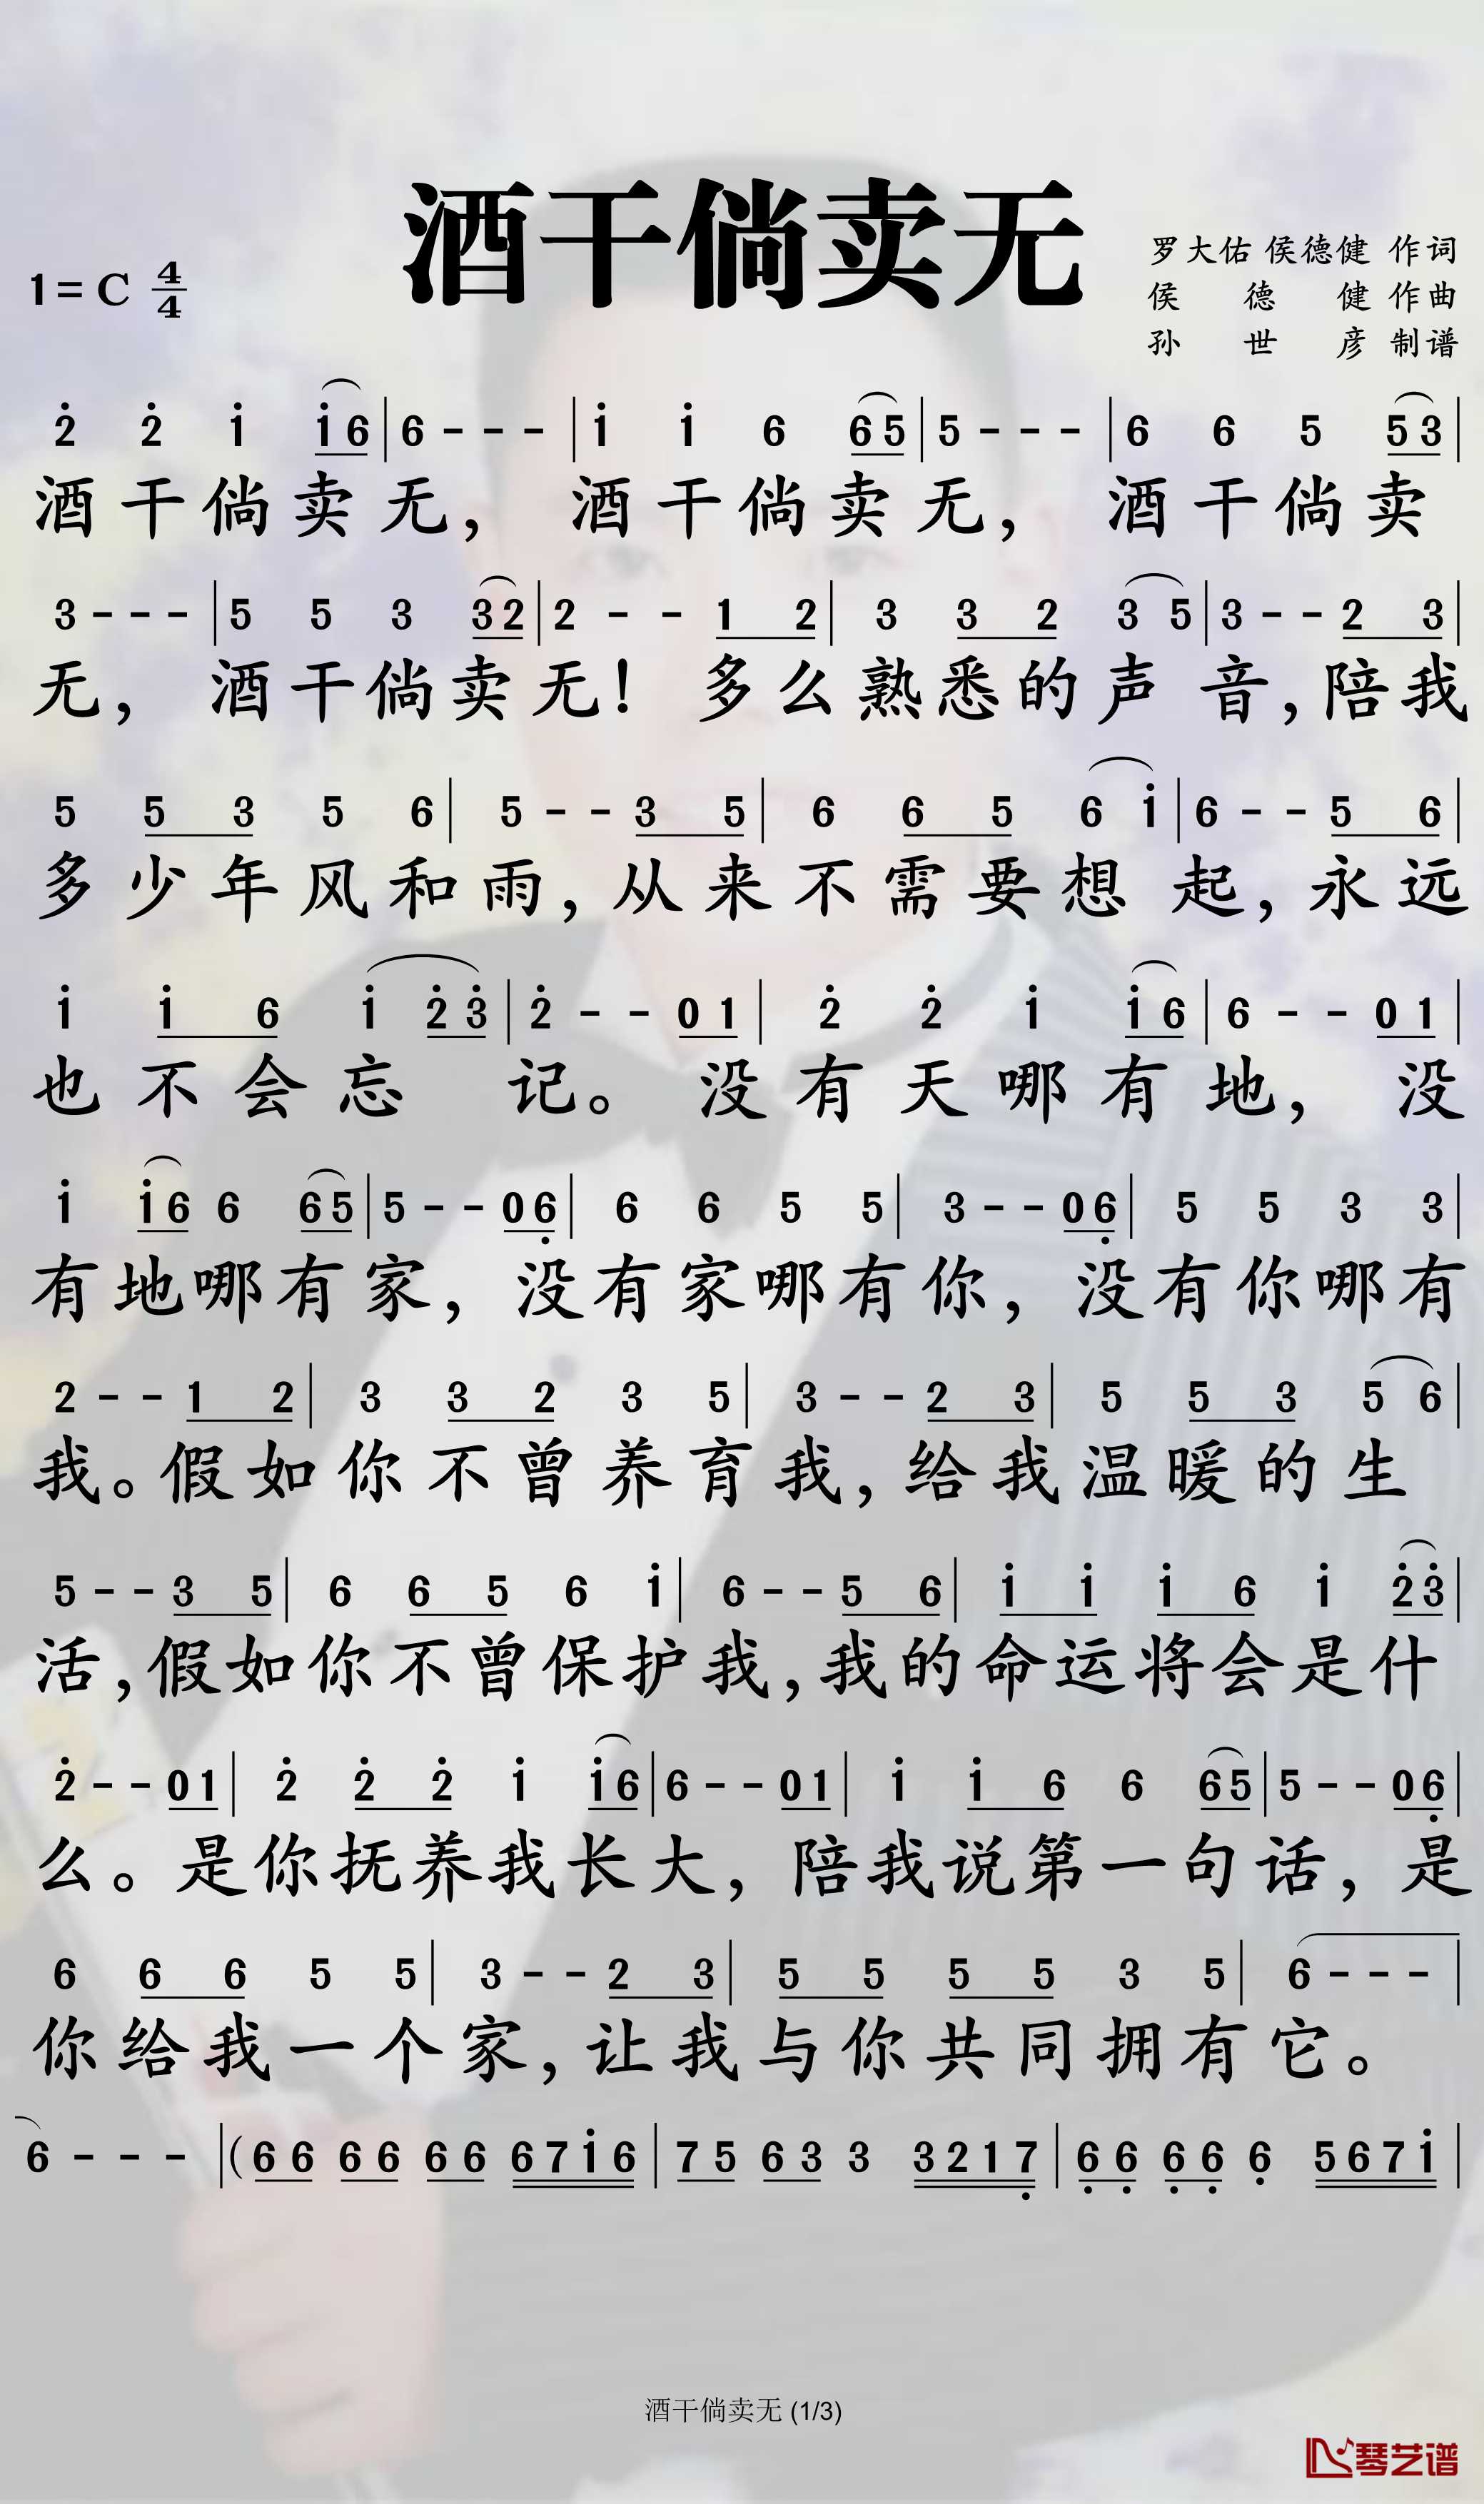 酒干倘卖无
1=C 4/4
罗大佑 侯德健 作词
侯德健 作曲
孙世彦 制谱
2̇ 2̇ 1̇ 1̇6 | 6 - - - | 1̇ 1̇ 6 65 | 5 - - - | 6 6 5 53 |
酒干倘卖无， 酒干倘卖无， 酒干倘卖
3 - - - | 5 5 3 32 | 2 - - 1 2 | 3 3 2 3 5 | 3 - - 2 3 |
无， 酒干倘卖无！ 多么熟悉的声音，陪我
5 5 3 5 6 | 5 - - 3 5 | 6 6 5 6 1̇ | 6 - - 5 6 |
多少年风和雨，从来不需要想起，永远
1̇ 1̇ 6 1̇ 2̇3̇ | 2̇ - - 01 | 2̇ 2̇ 1̇ 1̇6 | 6 - - 01 |
也不会忘记。 没有天哪有地， 没
1̇ 1̇6 6 65 | 5 - - 06̣ | 6 6 5 5 | 3 - - 06̣ | 5 5 3 3 |
有地哪有家，没有家哪有你，没有你哪有
2 - - 1 2 | 3 3 2 3 5 | 3 - - 2 3 | 5 5 3 5 6 |
我。假如你不曾养育我，给我温暖的生
5 - - 3 5 | 6 6 5 6 1̇ | 6 - - 5 6 | 1̇ 1̇ 1̇ 6 1̇ 2̇3̇ |
活，假如你不曾保护我，我的命运将会是什
2̇ - - 01 | 2̇ 2̇ 2̇ 1̇ 1̇6 | 6 - - 01 | 1̇ 1̇ 6 6 65 | 5 - - 06̣ |
么。是你抚养我长大，陪我说第一句话，是
6 6 6 5 5 | 3 - - 2 3 | 5 5 5 5 3 5 | 6 - - - |
你给我一个家，让我与你共同拥有它。
6 - - - | (66 66 66 671̇6 | 75 63 3 3217̣ | 6̣6̣ 6̣6̣ 6̣ 5671̇ |
酒干倘卖无 (1/3)
琴艺谱